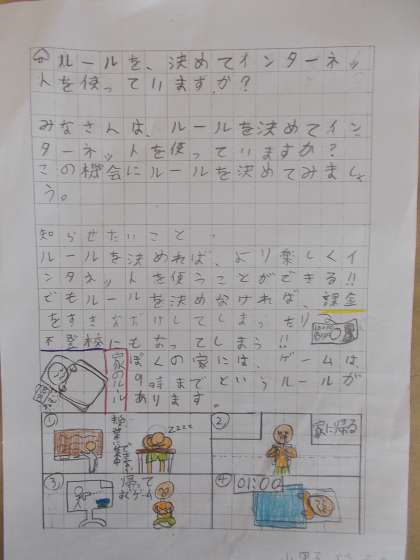 ルールを、決めてインターネッ
トを使っていますか？
みなさんは、ルールを決めてイン
ターネットを使っていますか？
この機会にルールを決めてみましょ
う。
知らせたいこと
ルールを決めれば、より楽しくイ
ンタネットを使うことができる!!
でもルールを決めなければ、課金
をすきなだけしてしまったり
不登校にもなってしまう!!
家のルール
ぼくの家には、ゲームは、
9時までというルールが
あります。
①
zzzz
②
家に帰る
③
帰って
すぐゲーム
④
01:00